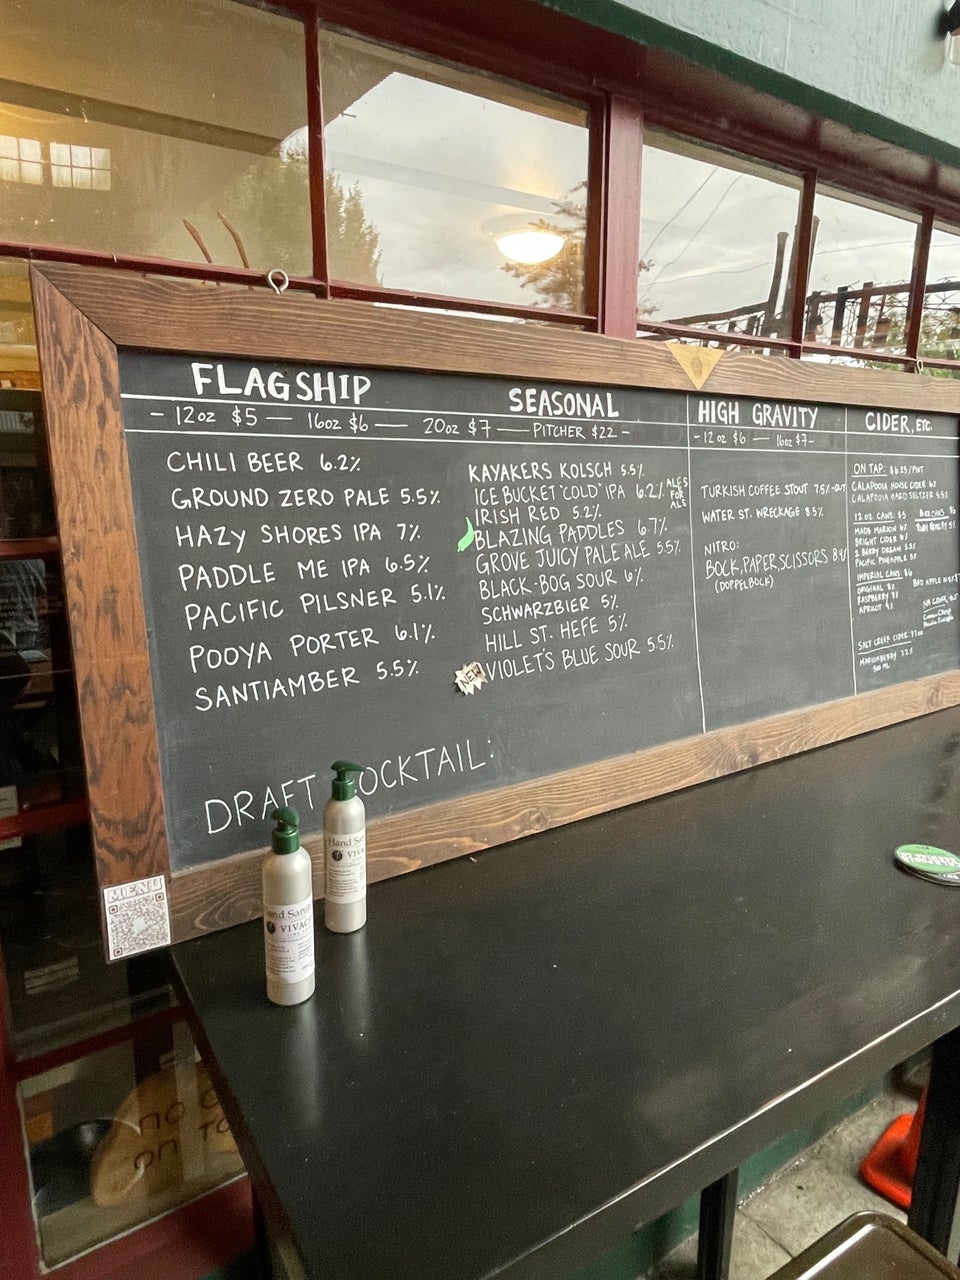 FLAGSHIP
SEASONAL
- 12oz $5 — 16oz $6 — 20oz $7 — PITCHER $22 -
CHILI BEER 6.2%
GROUND ZERO PALE 5.5%
HAZY SHORES IPA 7%
PADDLE ME IPA 6.5%
PACIFIC PILSNER 5.1%
POOYA PORTER 6.1%
SANTIAMBER 5.5%
KAYAKERS KOLSCH 5.5%
ICE BUCKET "COLD" IPA 6.2%
ALES
FOR
ALS
IRISH RED 5.2%
BLAZING PADDLES 6.7%
GROVE JUICY PALE ALE 5.5%
BLACK-BOG SOUR 6%
SCHWARZBIER 5%
HILL ST. HEFE 5%
NEW
VIOLET'S BLUE SOUR 5.5%
DRAFT COCKTAIL:
HIGH GRAVITY
- 12oz $6 — 16oz $7 -
TURKISH COFFEE STOUT 7.5%
WATER ST. WRECKAGE 8.5%
NITRO:
BOCK, PAPER, SCISSORS
(DOPPELBOCK)
CIDER, ETC.
ON TAP: /PINT
CALAPOOIA HOUSE CIDER
CALAPOOIA HARD SELTZER
12 OZ CANS: $5
MADE MARION 6%
BRIGHT CIDER 6%
2 BERRY DREAM
PACIFIC PINEAPPLE
IMPERIAL CANS: $6
ORIGINAL 8%
RASPBERRY
APRICOT
BAD APPLE
NA CIDER
SALT CREEK CIDER
MARIONBERRY
500 ML
MENU
Hand Sani
VIVAC
Hand San
VIVA
no
on To